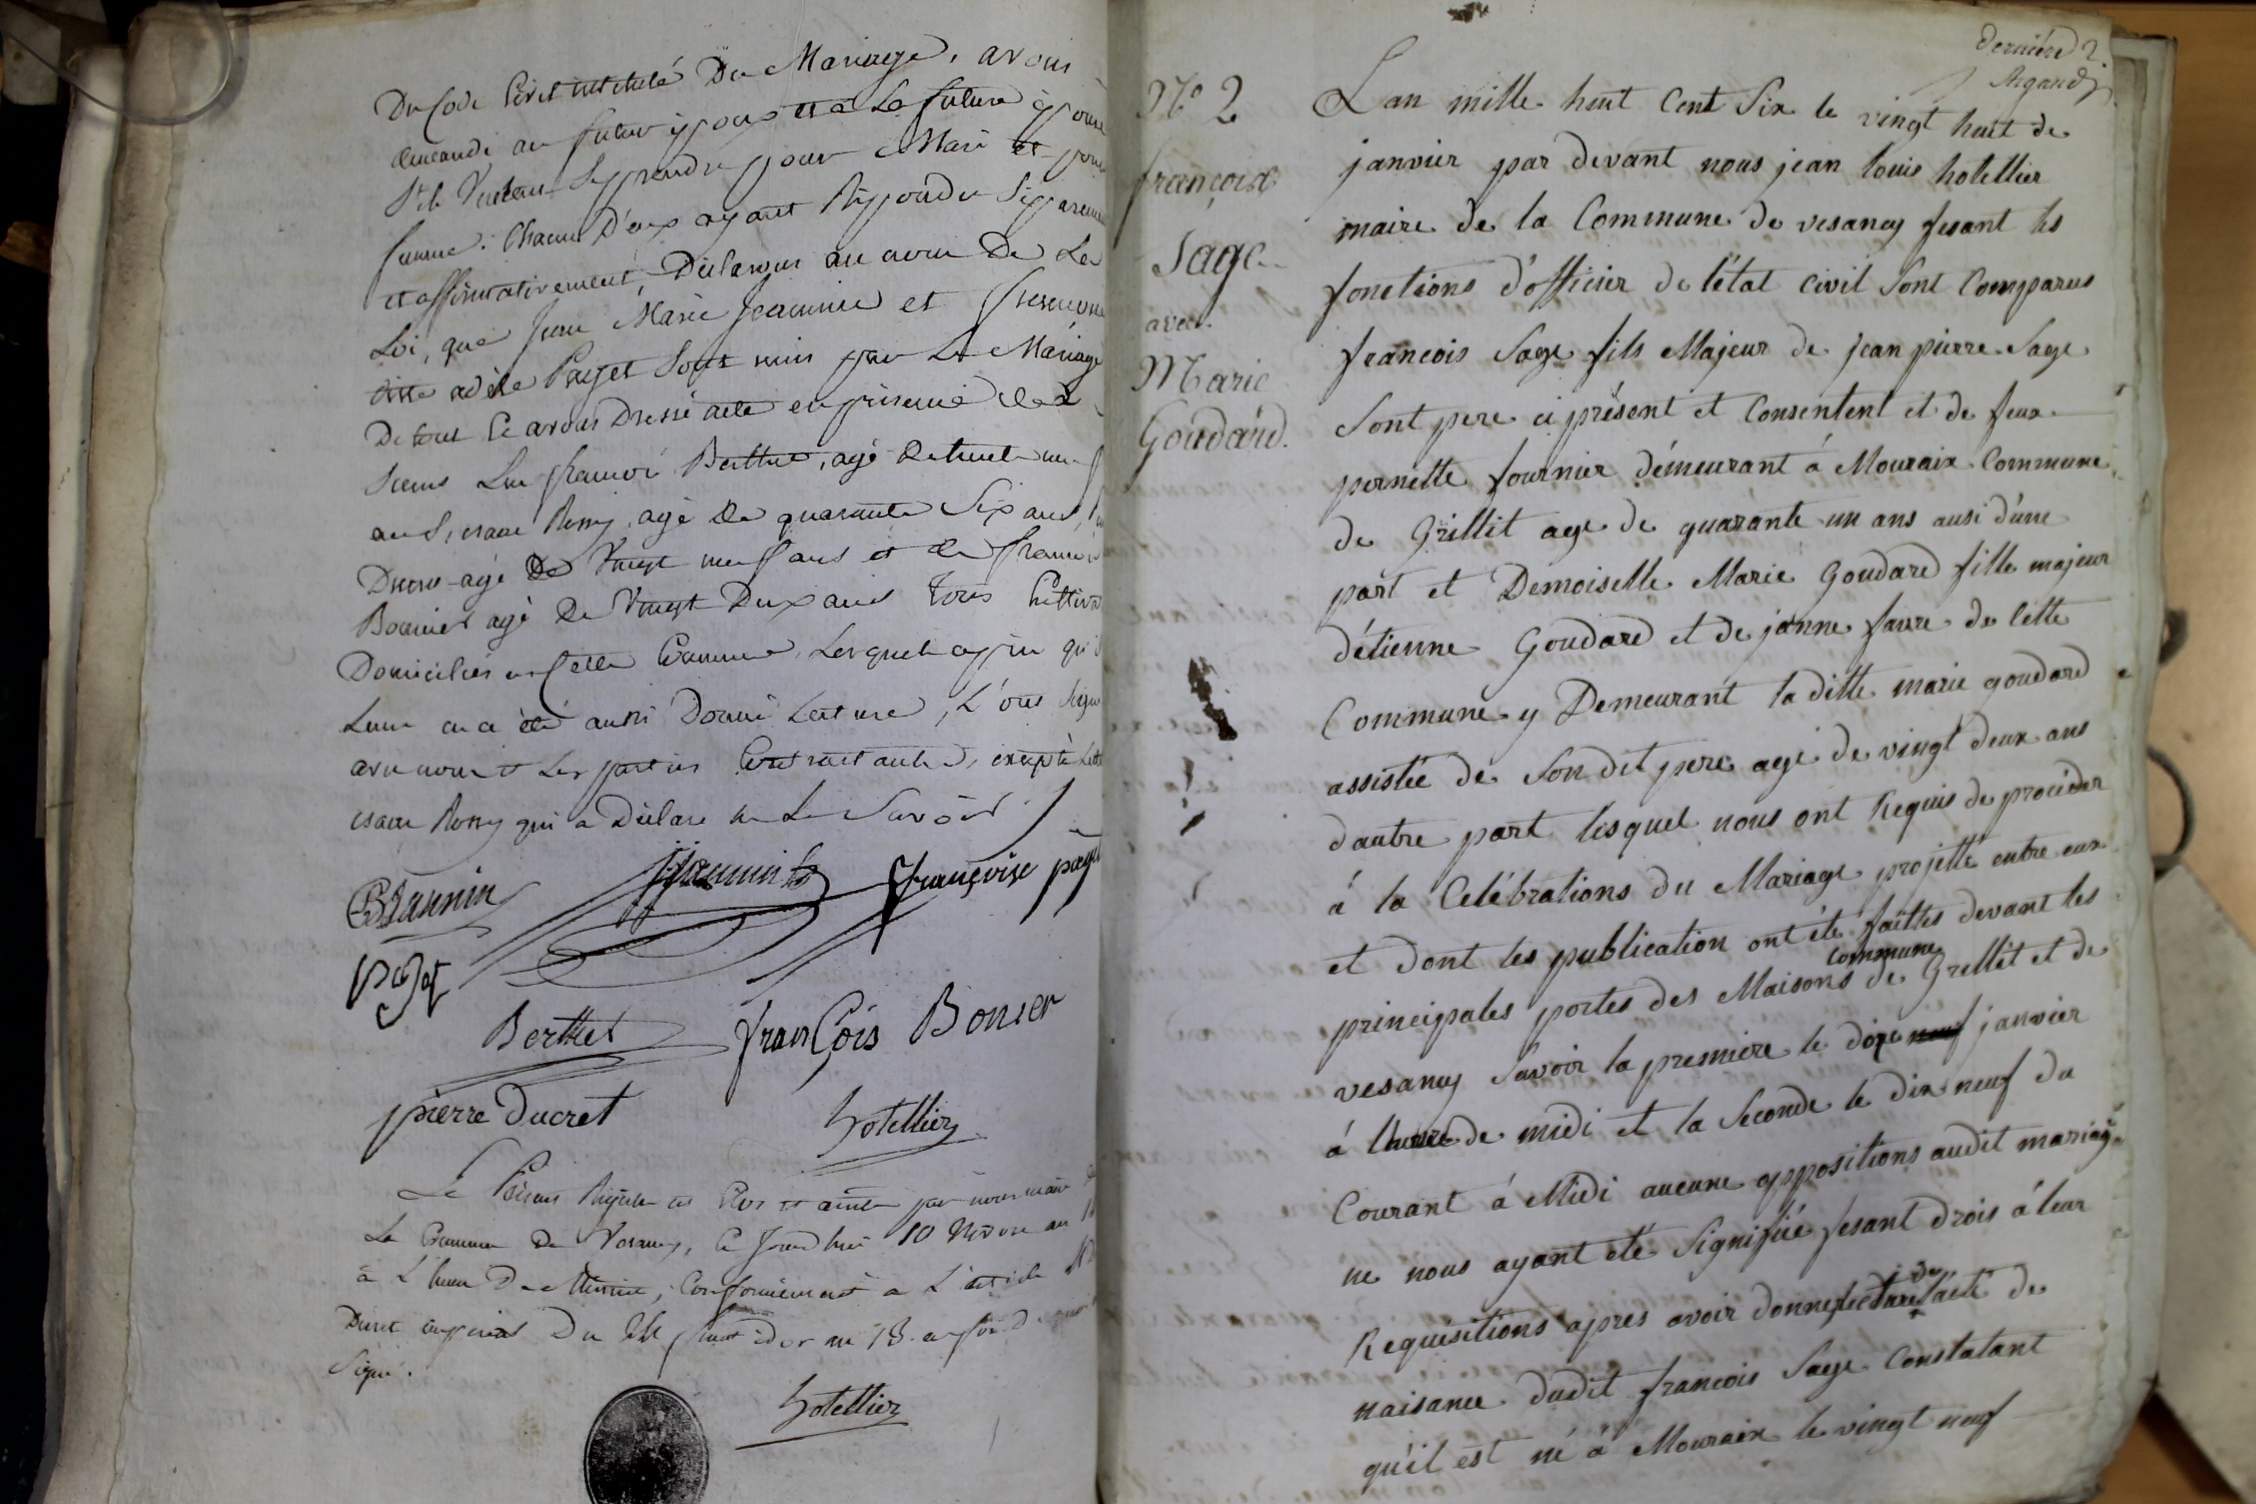 Du Code Civil intitulé Du Mariage, avons
demandé au futur époux et à La future épouse
S'ils Veulent Se prendre pour Mari et pour
femme. Chacun D'eux ayant Répondu Séparement
et affirmativement, Déclarons au nom De La
Loi, que Jean Marie Jeannin et françoise
ditte adèle Paget Sont unis par Le Mariage
De tout Ce avons Dressé acte en présence de
françoi Berthet, agé de trente un
ans, isaac Romy, agé De quarante Six ans,
Ducret agé De Vingt neuf ans et de françois
Bonnier agé De Vingt Deux ans tous Cultiva
Domiciliés en Cette Commune, Lesquels après qu'il
Leur en a été aussi Donné Lecture, L'ont Signé
avec nous et Les parties Contractantes, excepté Ledit
isaac Romy qui a Déclaré ne Le Savoir
Jeannin
françoise paget
Berthet
franCois Bonier
pierre Ducret
hotellier
Le Présent Régistre est Clos et arrêté par nous maire
La Commune De Vesancy, Ce Jourd'hui 10 Nivose an
à L'heure De Minuit, Conformément à L'article
Decret impérial Du
Signé.
hotellier
dernière 2.
Argand
No 2
françoix
Sage
avec
Marie
Goudard.
Lan mille huit Cent Six le vingt huit de
janvier par devant nous jean louis hotellier
maire de la Commune de vesancy fesant les
fonctions d'officier de l'état civil Sont Comparus
francois Sage fils Majeur de jean pierre Sage
Sont pere ci présent et Consentent et de feux
pernette fournier démeurant à Mouraix Commune
de Grillit age de quarante un ans ausi d'une
part et Demoiselle Marie Goudard fille majeur
d'étienne Goudard et de janne favre de Cette
Commune y Demeurant la ditte marie goudard
assistée de Son dit pere agé de vingt deux ans
dautre part lesquel nous ont Requis de procéder
à la Celébrations du Mariage projetté entre eux
et dont les publication ont été faittes devant les
principales portes des Maisons commune de Grillit et de
vesancy Savoir la premiere le doze janvier
à lheure de midi et la Seconde le dix neuf du
Courant à Midi aucune oppositions audit mariage
ne nous ayant été Signifiié fesant drois à leur
Requisitions apres avoir donne lecture de lacte de
naisance dudit francois Sage Constatant
qu'il est né à Mouraix le vingt neuf